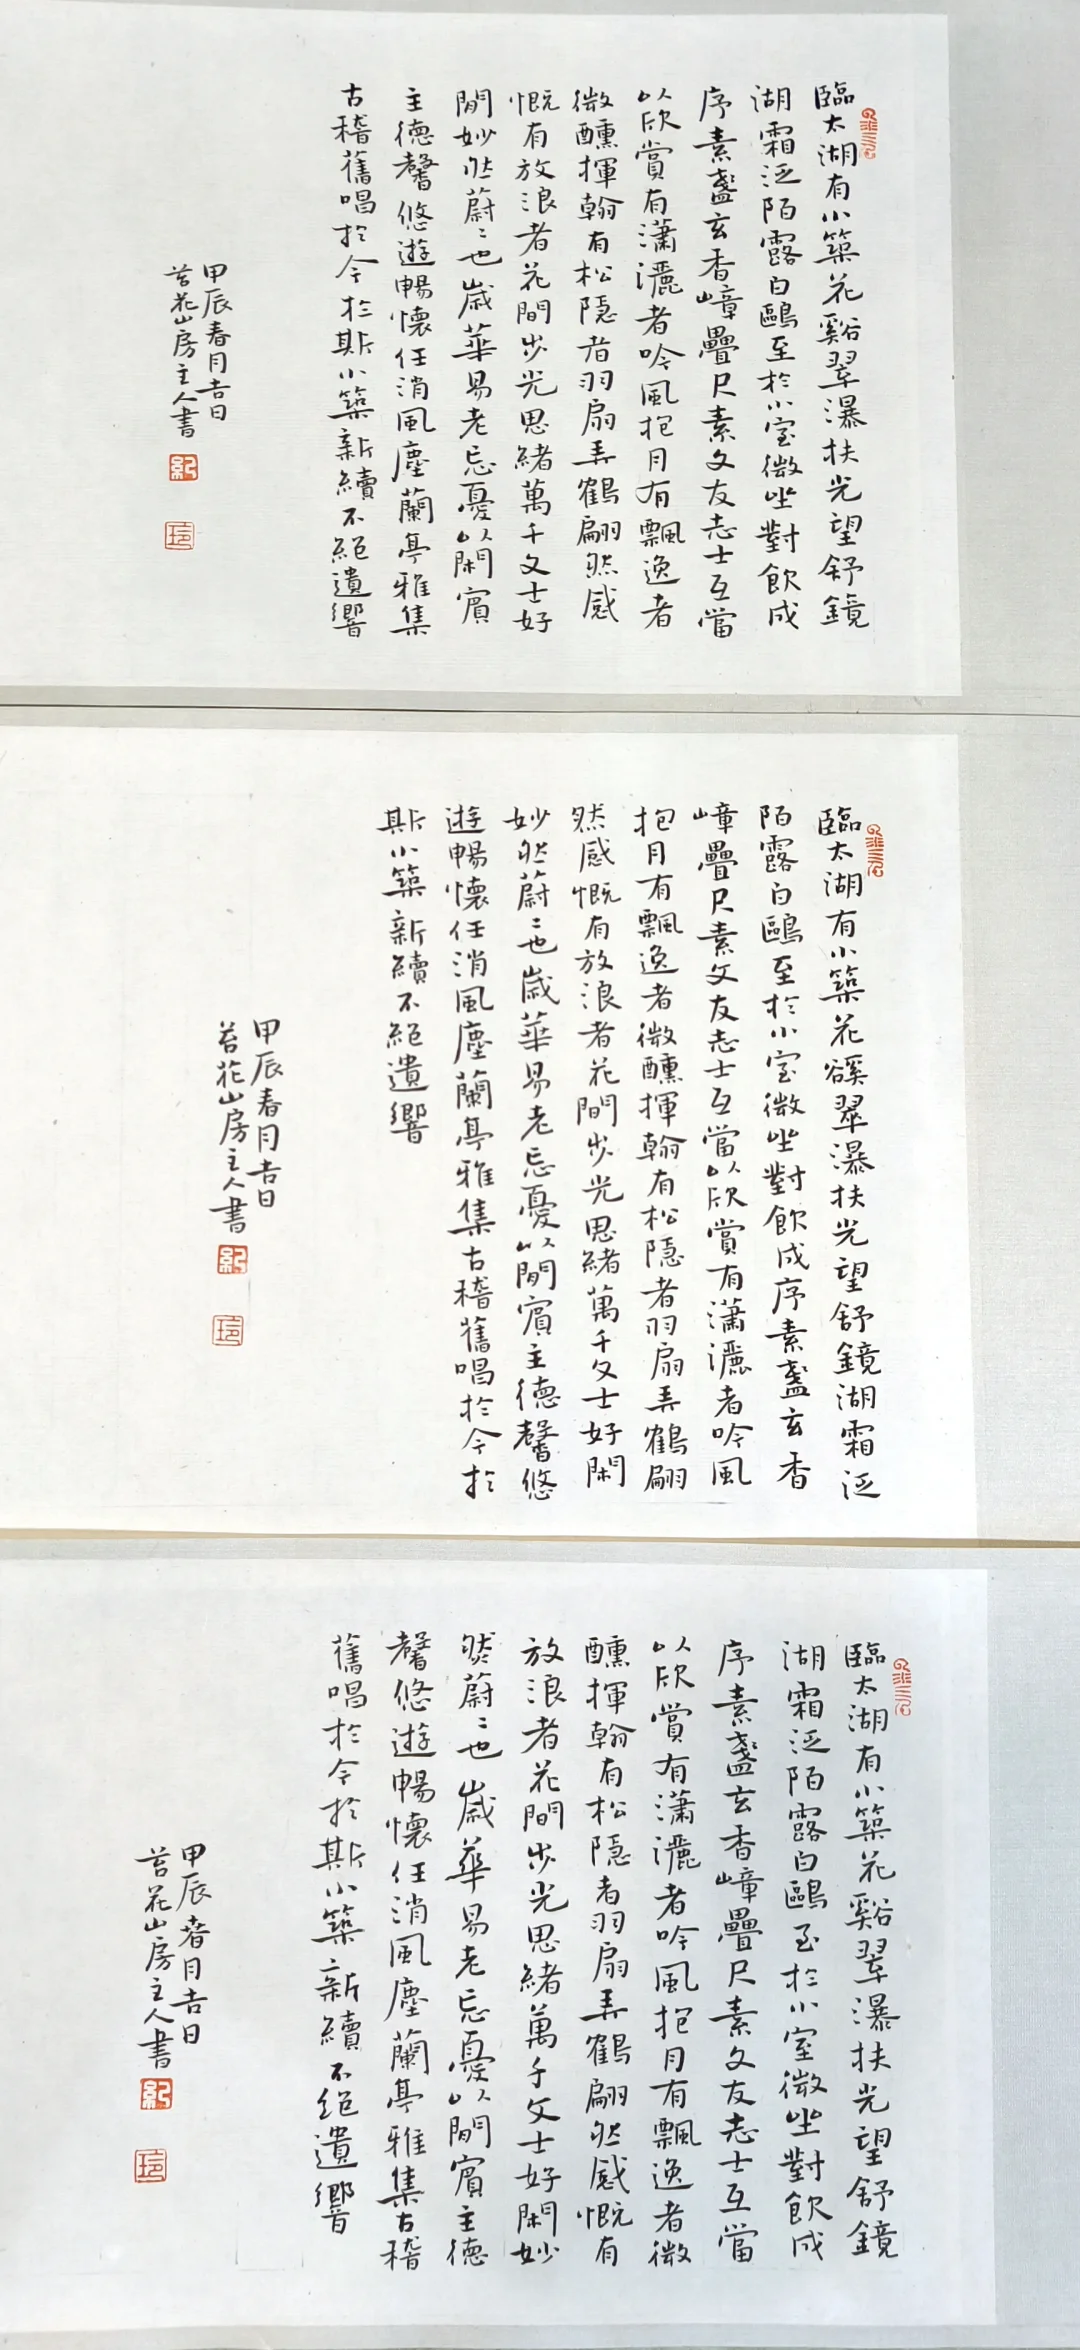 臨太湖有小築花谿翠瀑扶光望舒鏡
湖霜泛陌露白鷗至於小室微坐對飲成
序素盞玄香嶂疊尺素文友志士互當
以欣賞有瀟灑者吟風抱月有飄逸者
微醺揮翰有松隱者羽扇弄鶴翩然感
慨有放浪者花間步光思緒萬千文士好
閒妙然蔚〻也歲華易老忘憂以閒賓
主德馨悠遊暢懷任消風塵蘭亭雅集
古稽舊唱於今於斯小築新續不絕遺響
甲辰春月吉日
苔花山房主人書
紀
臨太湖有小築花谿翠瀑扶光望舒鏡湖霜泛
陌露白鷗至於小室微坐對飲成序素盞玄香
嶂疊尺素文友志士互當以欣賞有瀟灑者吟風
抱月有飄逸者微醺揮翰有松隱者羽扇弄鶴翩
然感慨有放浪者花間步光思緒萬千文士好閑
妙然蔚〻也歲華易老忘憂以閒賓主德馨悠
遊暢懷任消風塵蘭亭雅集古稽舊唱於今於
斯小築新續不絕遺響
甲辰春月吉日
苔花山房主人書
紀
臨太湖有小築花谿翠瀑扶光望舒鏡
湖霜泛陌露白鷗至於小室微坐對飲成
序素盞玄香嶂疊尺素文友志士互當
以欣賞有瀟灑者吟風抱月有飄逸者微
醺揮翰有松隱者羽扇弄鶴翩然感慨有
放浪者花間步光思緒萬千文士好閑妙
然蔚〻也歲華易老忘憂以閒賓主德
馨悠遊暢懷任消風塵蘭亭雅集古稽
舊唱於今於斯小築新續不絕遺響
甲辰春月吉日
苔花山房主人書
紀